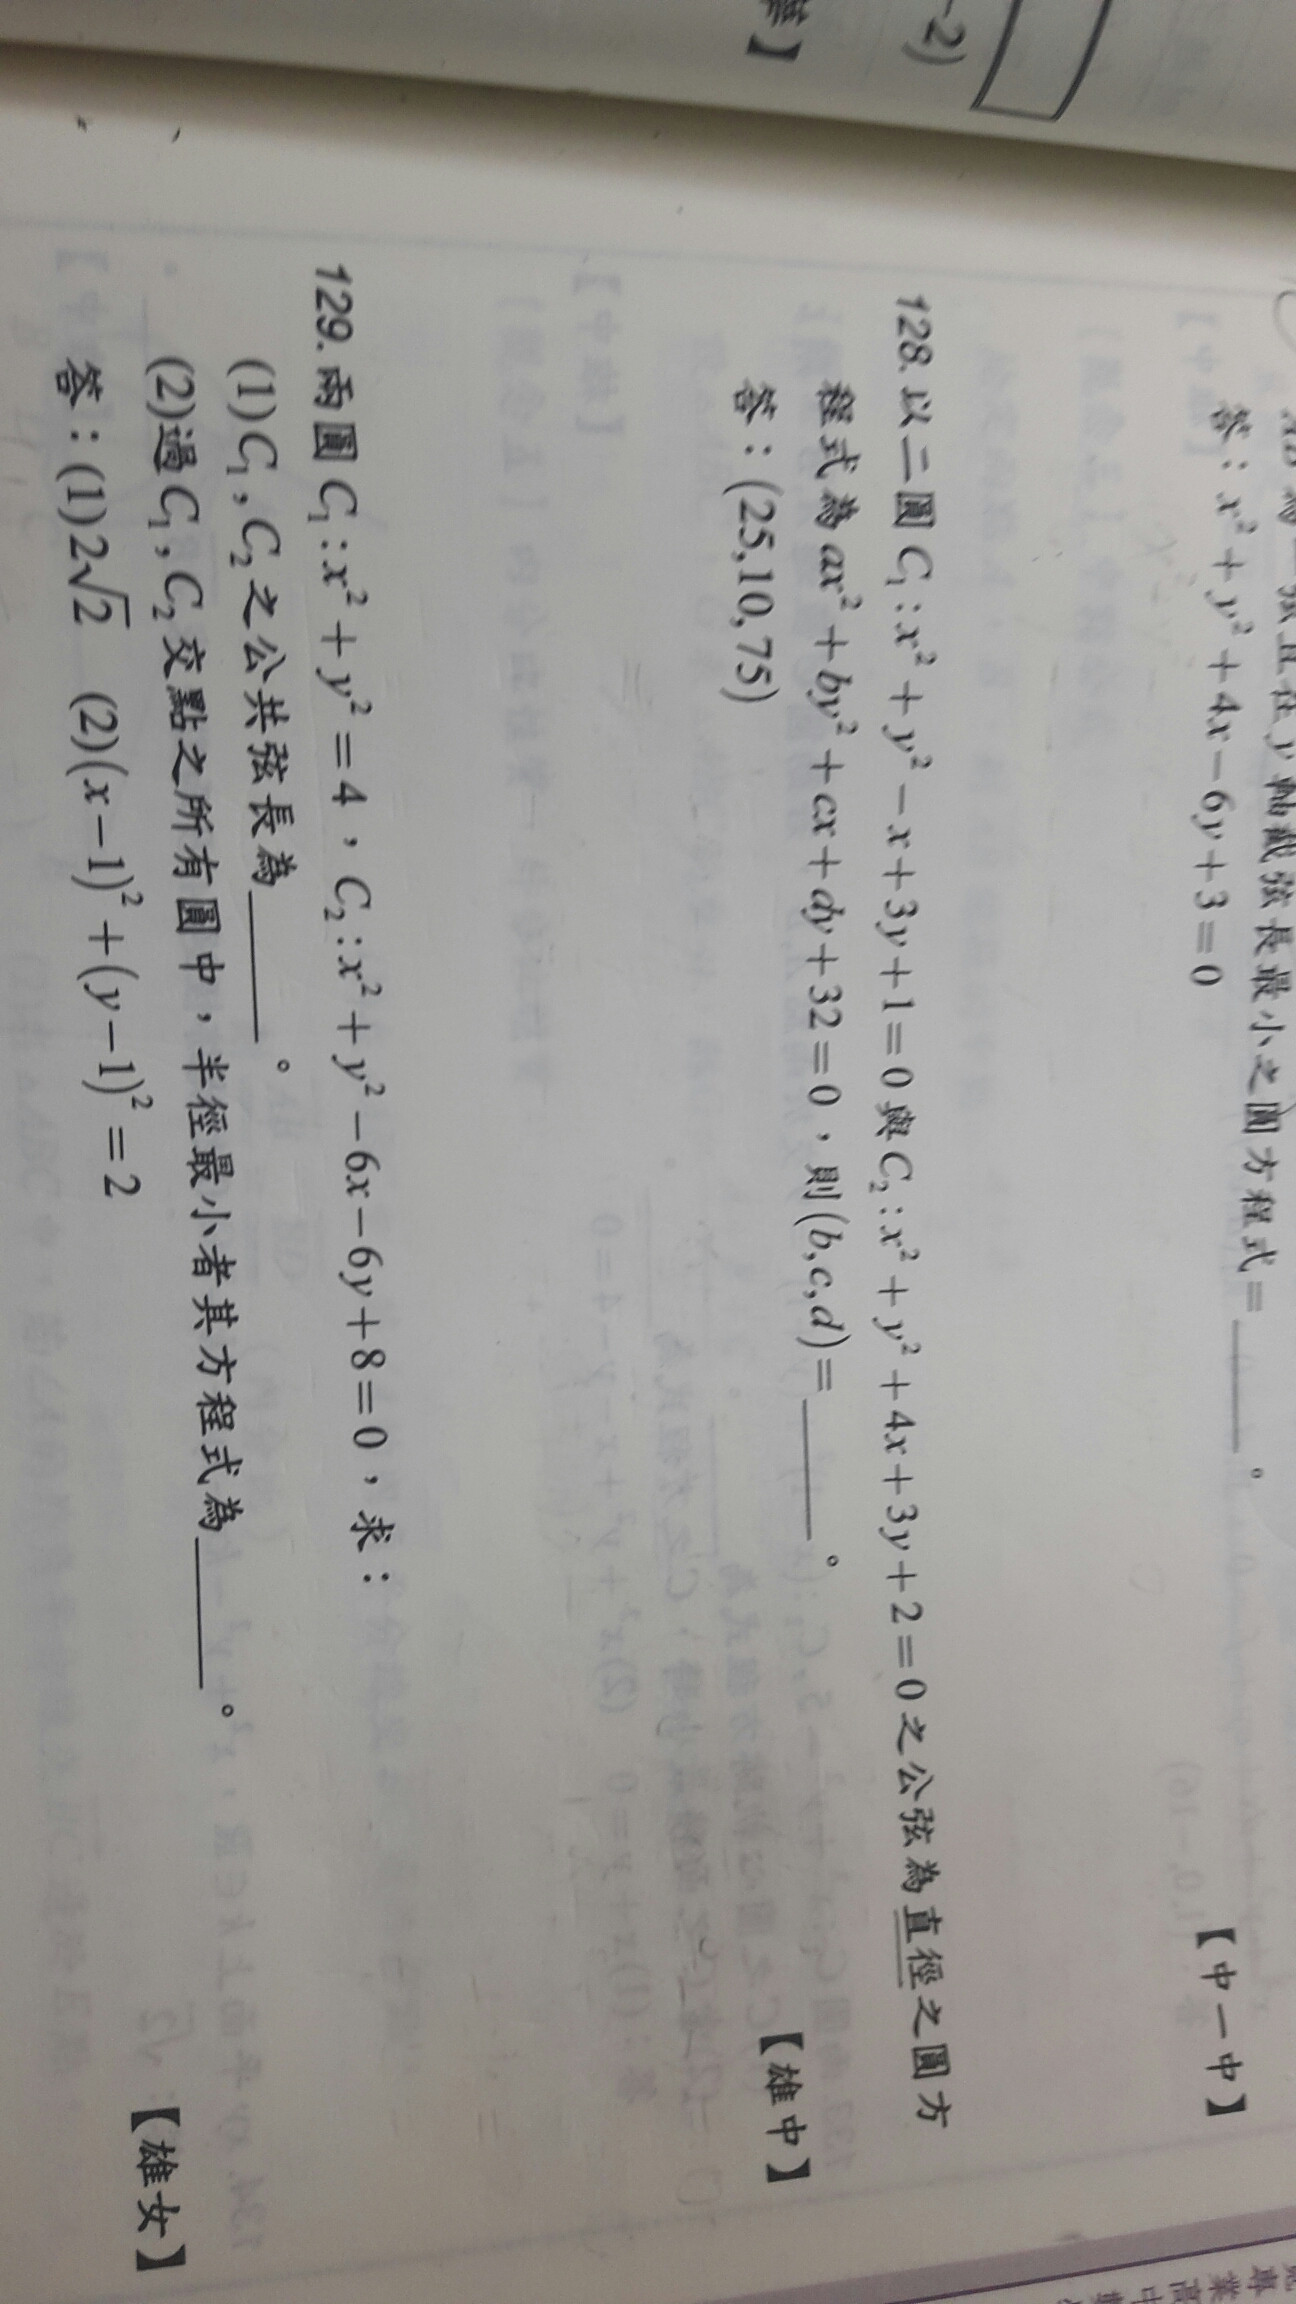 弦且在y軸截弦長最小之圓方程式=______。
答：x²+y²+4x-6y+3=0
【中一中】
128. 以二圓C₁:x²+y²-x+3y+1=0與C₂:x²+y²+4x+3y+2=0之公弦為直徑之圓方
程式為ax²+by²+cx+dy+32=0，則(b,c,d)=______。
答：(25,10,75)
【雄中】
129. 兩圓C₁:x²+y²=4，C₂:x²+y²-6x-6y+8=0，求：
(1)C₁，C₂之公共弦長為______。
(2)過C₁，C₂交點之所有圓中，半徑最小者其方程式為______。
答：(1)2√2 (2)(x-1)²+(y-1)²=2
【雄女】
-2)